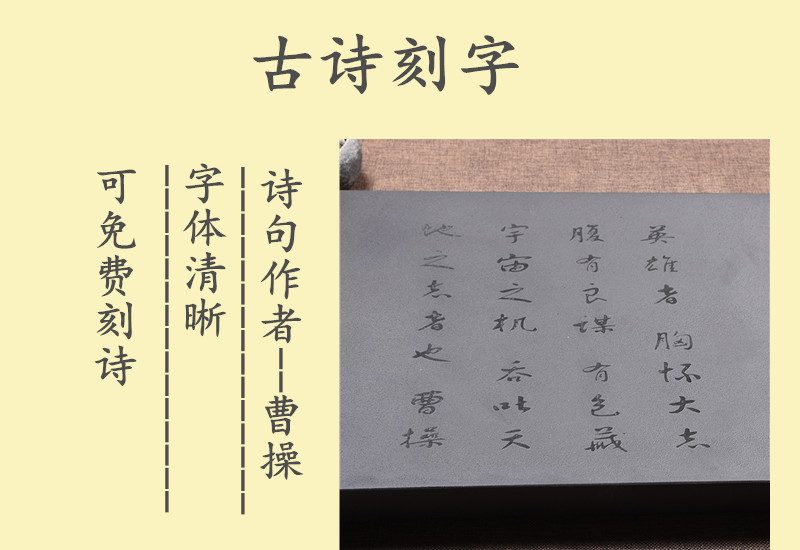 古诗刻字
诗句作者--曹操
字体清晰
可免费刻诗
英雄者 胸怀大志
腹有良谋 有包藏
宇宙之机 吞吐天
地之志者也 曹操